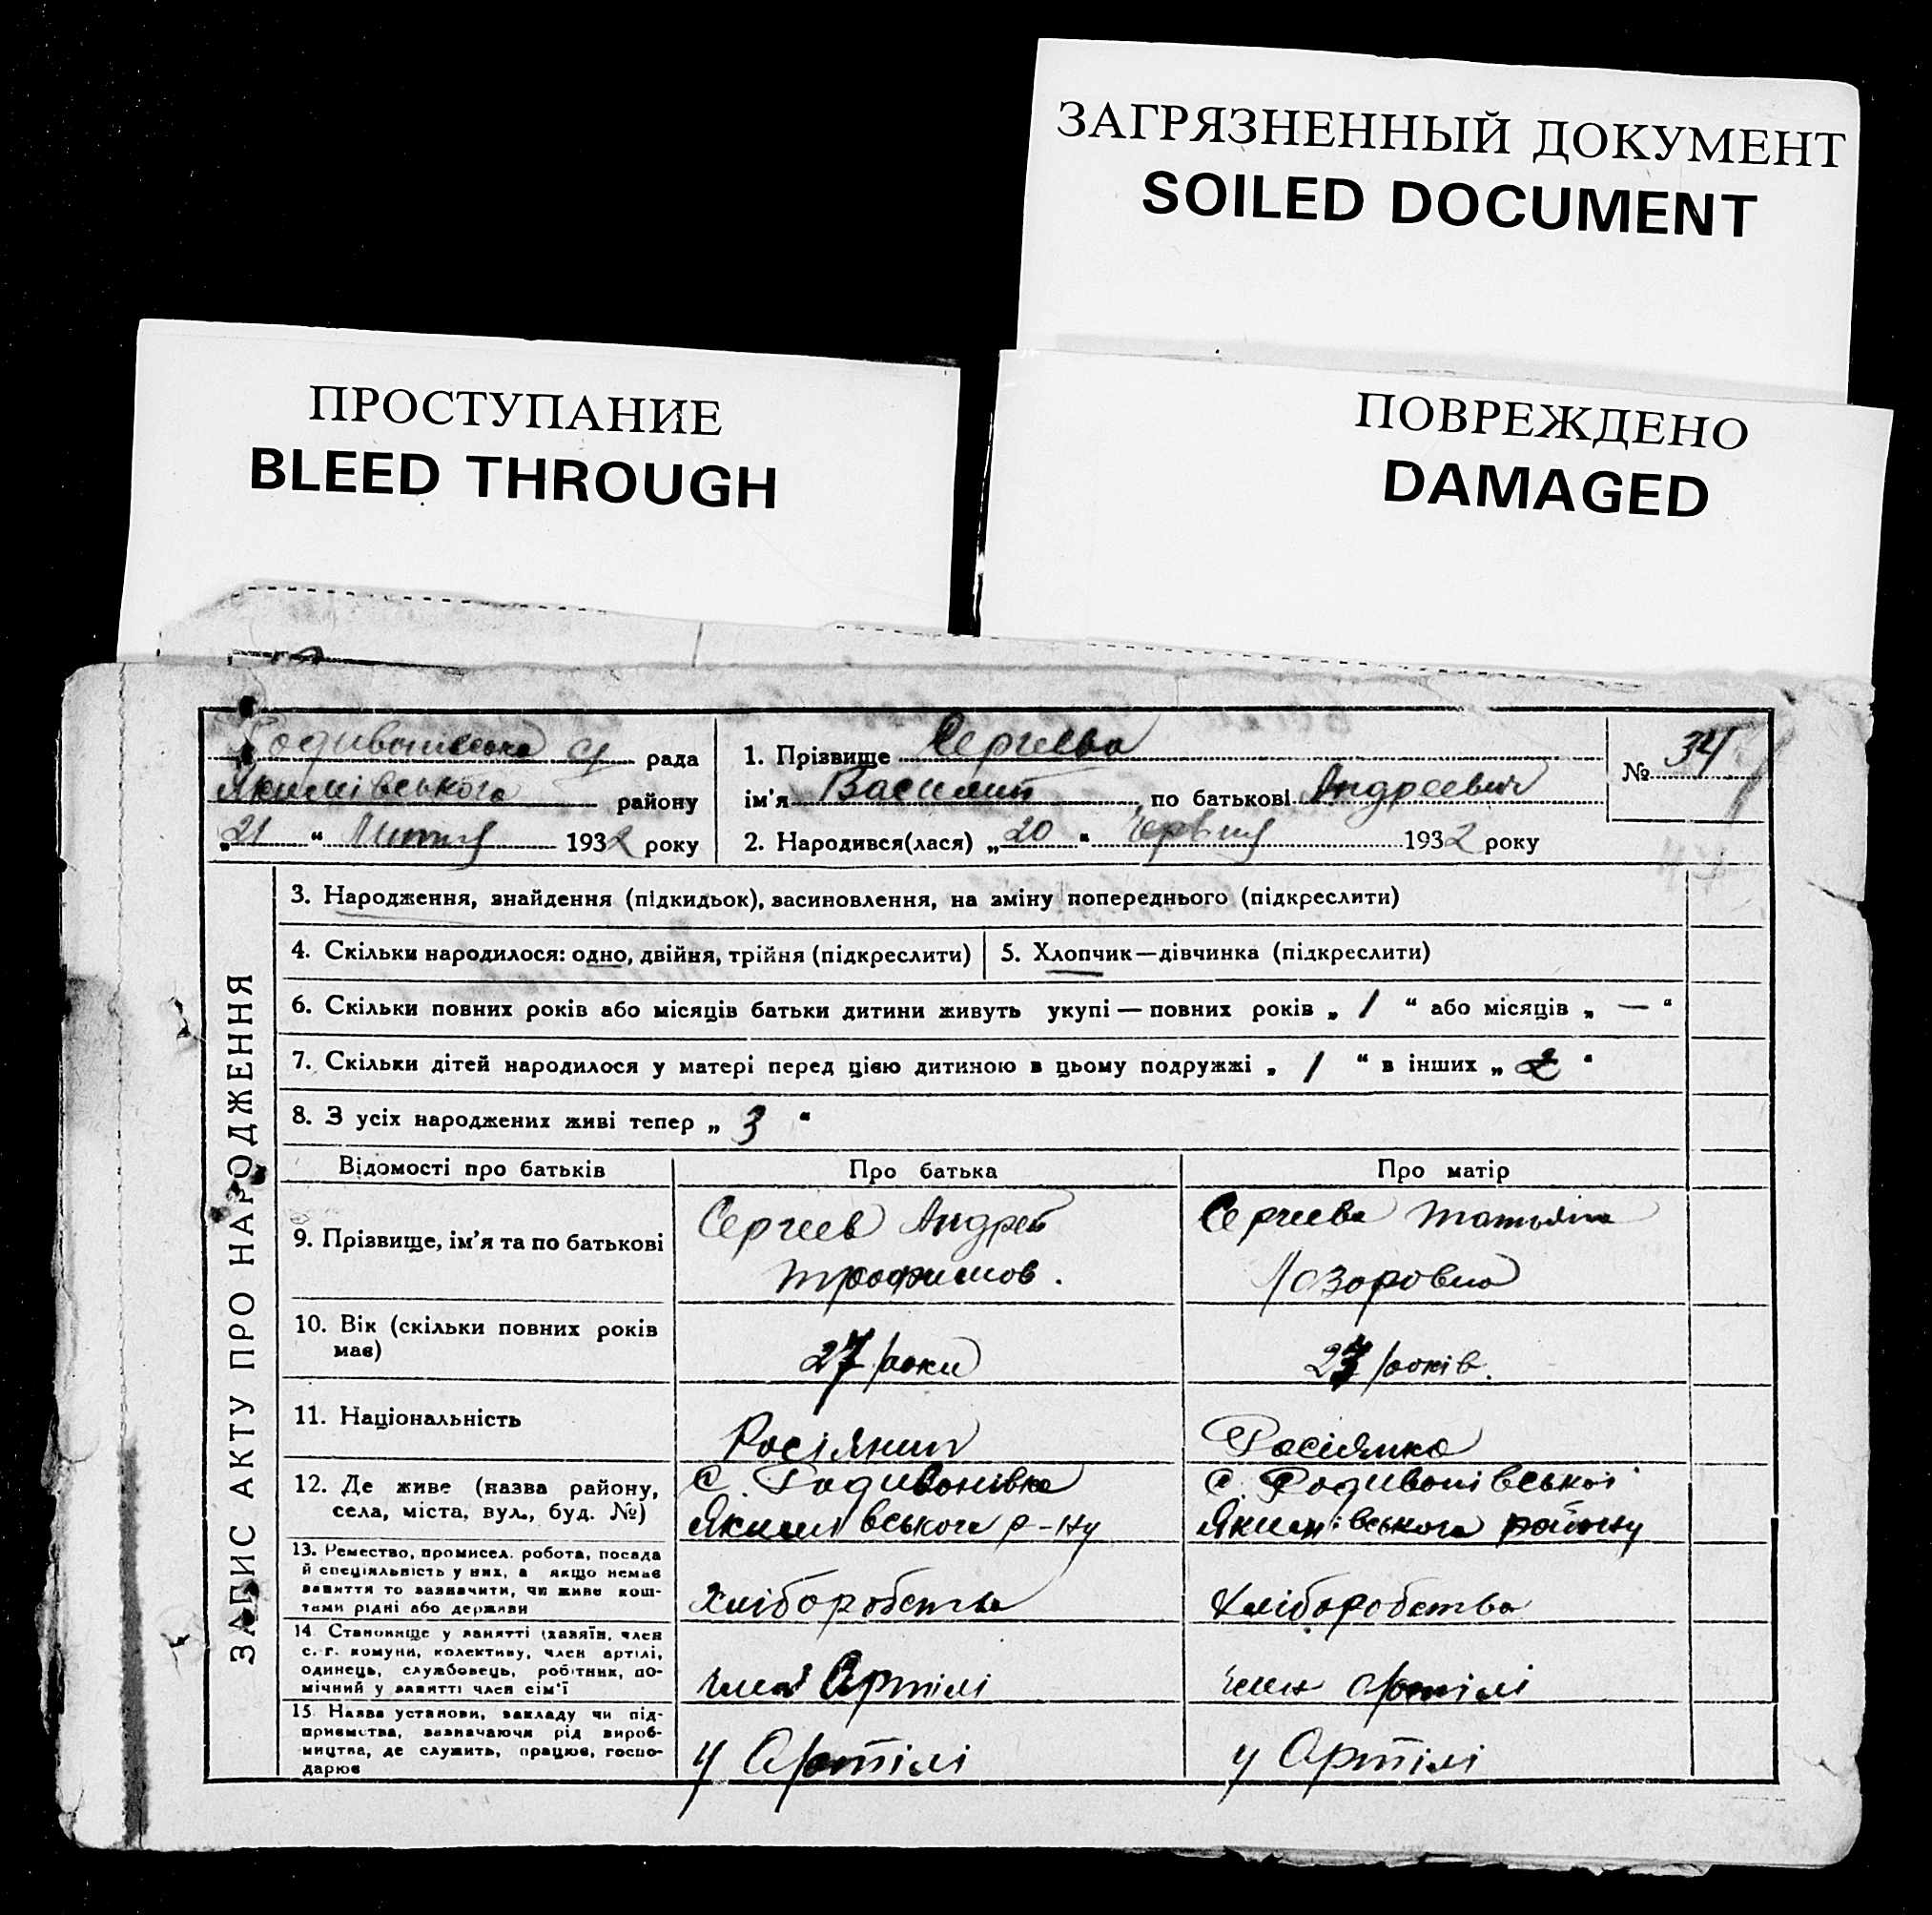 ЗАГРЯЗНЕННЫЙ ДОКУМЕНТ
SOILED DOCUMENT
ПРОСТУПАНИЕ
BLEED THROUGH
ПОВРЕЖДЕНО
DAMAGED
ЗАПИС АКТУ ПРО НАРОДЖЕННЯ
рада
Якимівського району
„21“ 1932 року
1. Прізвище Сергеева
ім'я Василий, по батькові Андреевич
2. Народився(лася) „20“ Червня 1932 року
№ 34
3. Народження, знайдення (підкидьок), засиновлення, на зміну попереднього (підкреслити)
4. Скільки народилося: одно, двійня, трійня (підкреслити) 5. Хлопчик—дівчинка (підкреслити)
6. Скільки повних років або місяців батьки дитини живуть укупі — повних років „ 1 “ або місяців „ — “
7. Скільки дітей народилося у матері перед цією дитиною в цьому подружжі „ 1 “ в інших „ 2 “
8. З усіх народжених живі тепер „ 3 “
Відомості про батьків Про батька Про матір
9. Прізвище, ім'я та по батькові
Сергеев Андрей
Трофимов.
Сергеева Татьяна
Лазоровна
10. Вік (скільки повних років
має)
27 роки
27 років.
11. Національність
Росіянин
Росіянка
12. Де живе (назва району,
села, міста, вул., буд. №)
с. Родивонівка
Якимівського р-ну
с. Родивонівської
Якимівського району
13. Ремество, промисел. робота, посада
й спеціяльність у них, а якщо немає
заняття то зазначити, чи живе кош-
тами рідні або держави
Хліборобство
Хліборобство
14. Становище у занятті (хазяїн, член
с.-г. комуни, колективу, член артілі,
одинець, службовець, робітник, по-
мічний у занятті член сім'ї
член Артілі
член артілі
15. Назва установи, закладу чи під-
приємства, зазначаючи рід вироб-
ництва, де служить, працює, госпо-
дарює
у Артілі
у Артілі